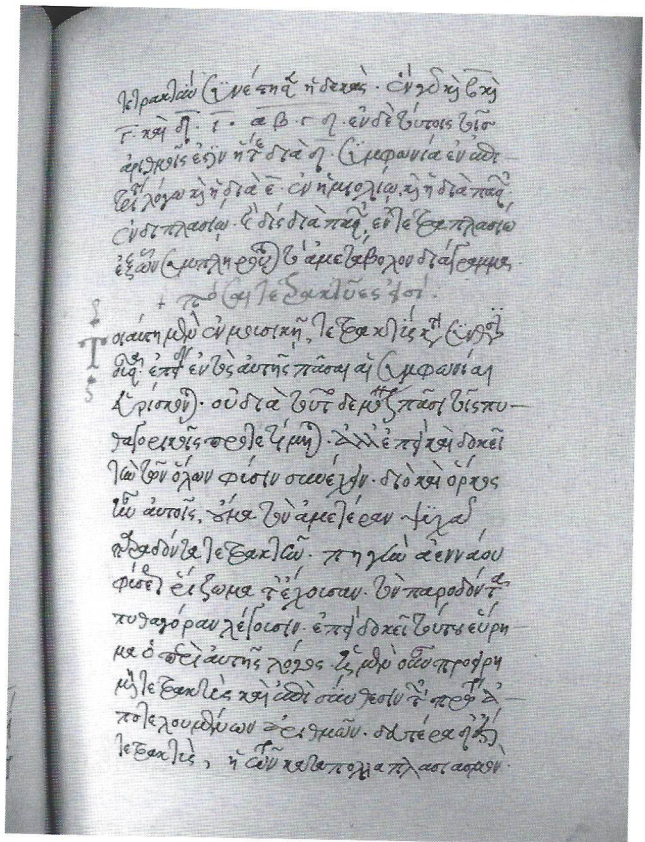 τετρακτὺν συνέστησεν ἡ δεκάς· ἓν γὰρ καὶ β καὶ
γ· καὶ δ· ι· α β γ δ· ἐν δὲ τούτοις τοῖς
ἀριθμοῖς ἐστὶν ἥ τε διὰ δ· συμφωνία ἐν ἐπι-
τρίτῳ λόγῳ καὶ ἡ διὰ ε· ἐν ἡμιολίῳ, καὶ ἡ διὰ πασῶν·
ἐν διπλασίῳ· καὶ δὶς διὰ πασῶν, ἐν τετραπλασίῳ
ἐξ ὧν συμπληροῦται τὸ ἀμετάβολον διάγραμμα·
+ πόσαι τετρακτύες εἰσί·
Τοιαύτη μὲν ἐν μουσικῇ, τετρακτὺς κατὰ σύνθεσιν
ἐπεὶ ἐν αὐτῆς πᾶσαι αἱ συμφωνίαι
εὑρίσκονται· οὐ διὰ τοῦτο δὲ μόνον πᾶσι τοῖς πυ-
θαγορικοῖς προτετίμηται· ἀλλ' ἐπεὶ καὶ δοκεῖ
τὴν τῶν ὅλων φύσιν συνέχειν· διὸ καὶ ὅρκος
ἦν αὐτοῖς, οὐ μὰ τὸν ἁμετέραν ψυχᾶ
παραδόντα τετρακτὺν· πηγὴν ἀεννάου
φύσεως ῥίζωμα τ' ἔχουσαν· τὸν παραδόντα
πυθαγόραν λέγουσιν· ἐπεὶ δοκεῖ τούτου εὕρη-
μα ὁ περὶ αὐτῆς λόγος· ἡ μὲν οὖν προειρη-
μένη τετρακτὺς καὶ ἐπισύνθεσιν τῶν πρώτων ἀ-
ποτελουμένων ἀριθμῶν· δευτέρα δ' ἐστὶ
τετρακτὺς, ἡ τῶν κατὰ πολλαπλασιασμὸν·